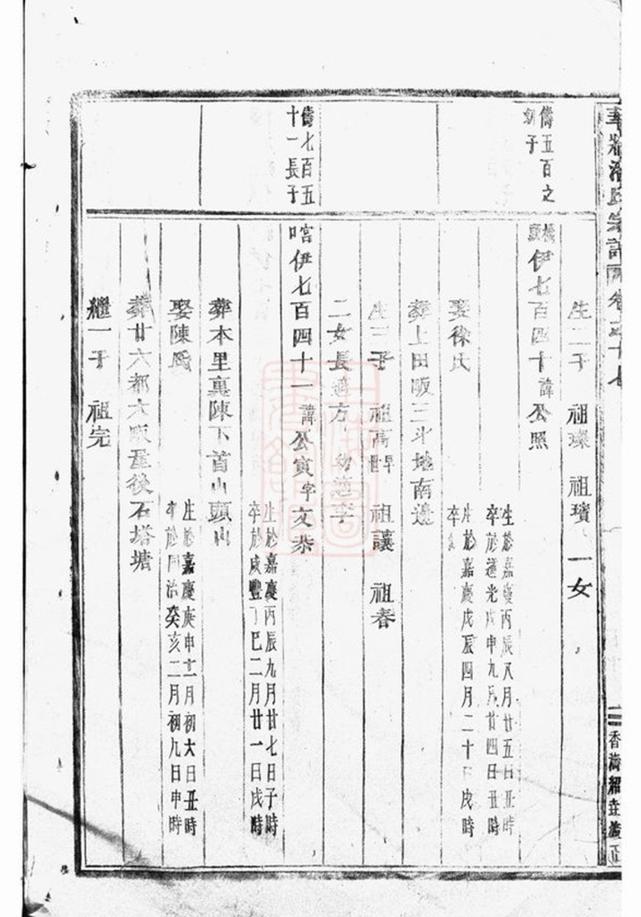 氏宗譜 卷之十七
生二子 祖璨 祖璸 一女
儔五百之
子
伊七百四十諱公照
生於嘉慶丙辰八月廿五日丑時
卒於道光戊申九月廿四日丑時
娶徐氏
生於嘉慶戊辰四月二十日戌時
卒
葬上田畈三斗坵南邊
生三子 祖高早世 祖讓 祖春
二女長適方 幼適李
儔七百五
十一長子
伊七百四十一諱公寅字文恭
生於嘉慶丙辰九月廿七日子時
卒於咸豐丁巳二月廿一日戌時
葬本里裏陳下首山頭山
娶陳氏
生於嘉慶庚申十二月初六日丑時
卒於同治癸亥二月初九日申時
葬廿六都大畈屋後石塔塘
繼一子 祖完